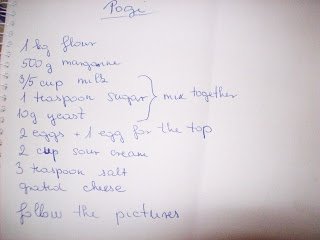 Pogi
1 kg flour
500 g margarine
3/5 cup milk
1 teaspoon sugar } mix together
10g yeast
2 eggs + 1 egg for the top
2 cup sour cream
3 teaspoon salt
grated cheese
follow the pictures